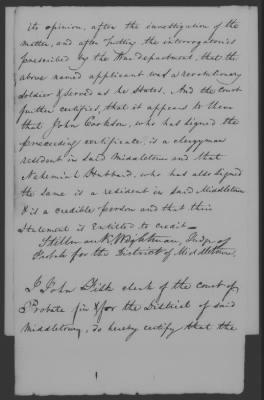 its opinion, after the investigation of the
matter, and after putting the interrogatories
prescribed by the War department, that the
above named applicant was a revolutionary
soldier & served as he states. And the court
further certifies, that it appears to them
that John Cookson, who has signed the
preceeding certificate, is a clergyman
resident in said Middletown and that
Nehemiah Hubbard, who has also signed
the same is a resident in said Middletown
& is a credible person and that their
statement is entitled to credit —
Stillman K. Wightman, Judge of
Probate for the District of Middletown.
I John Fisk clerk of the court of
Probate in & for the District of said
Middletown, do hereby certify that the